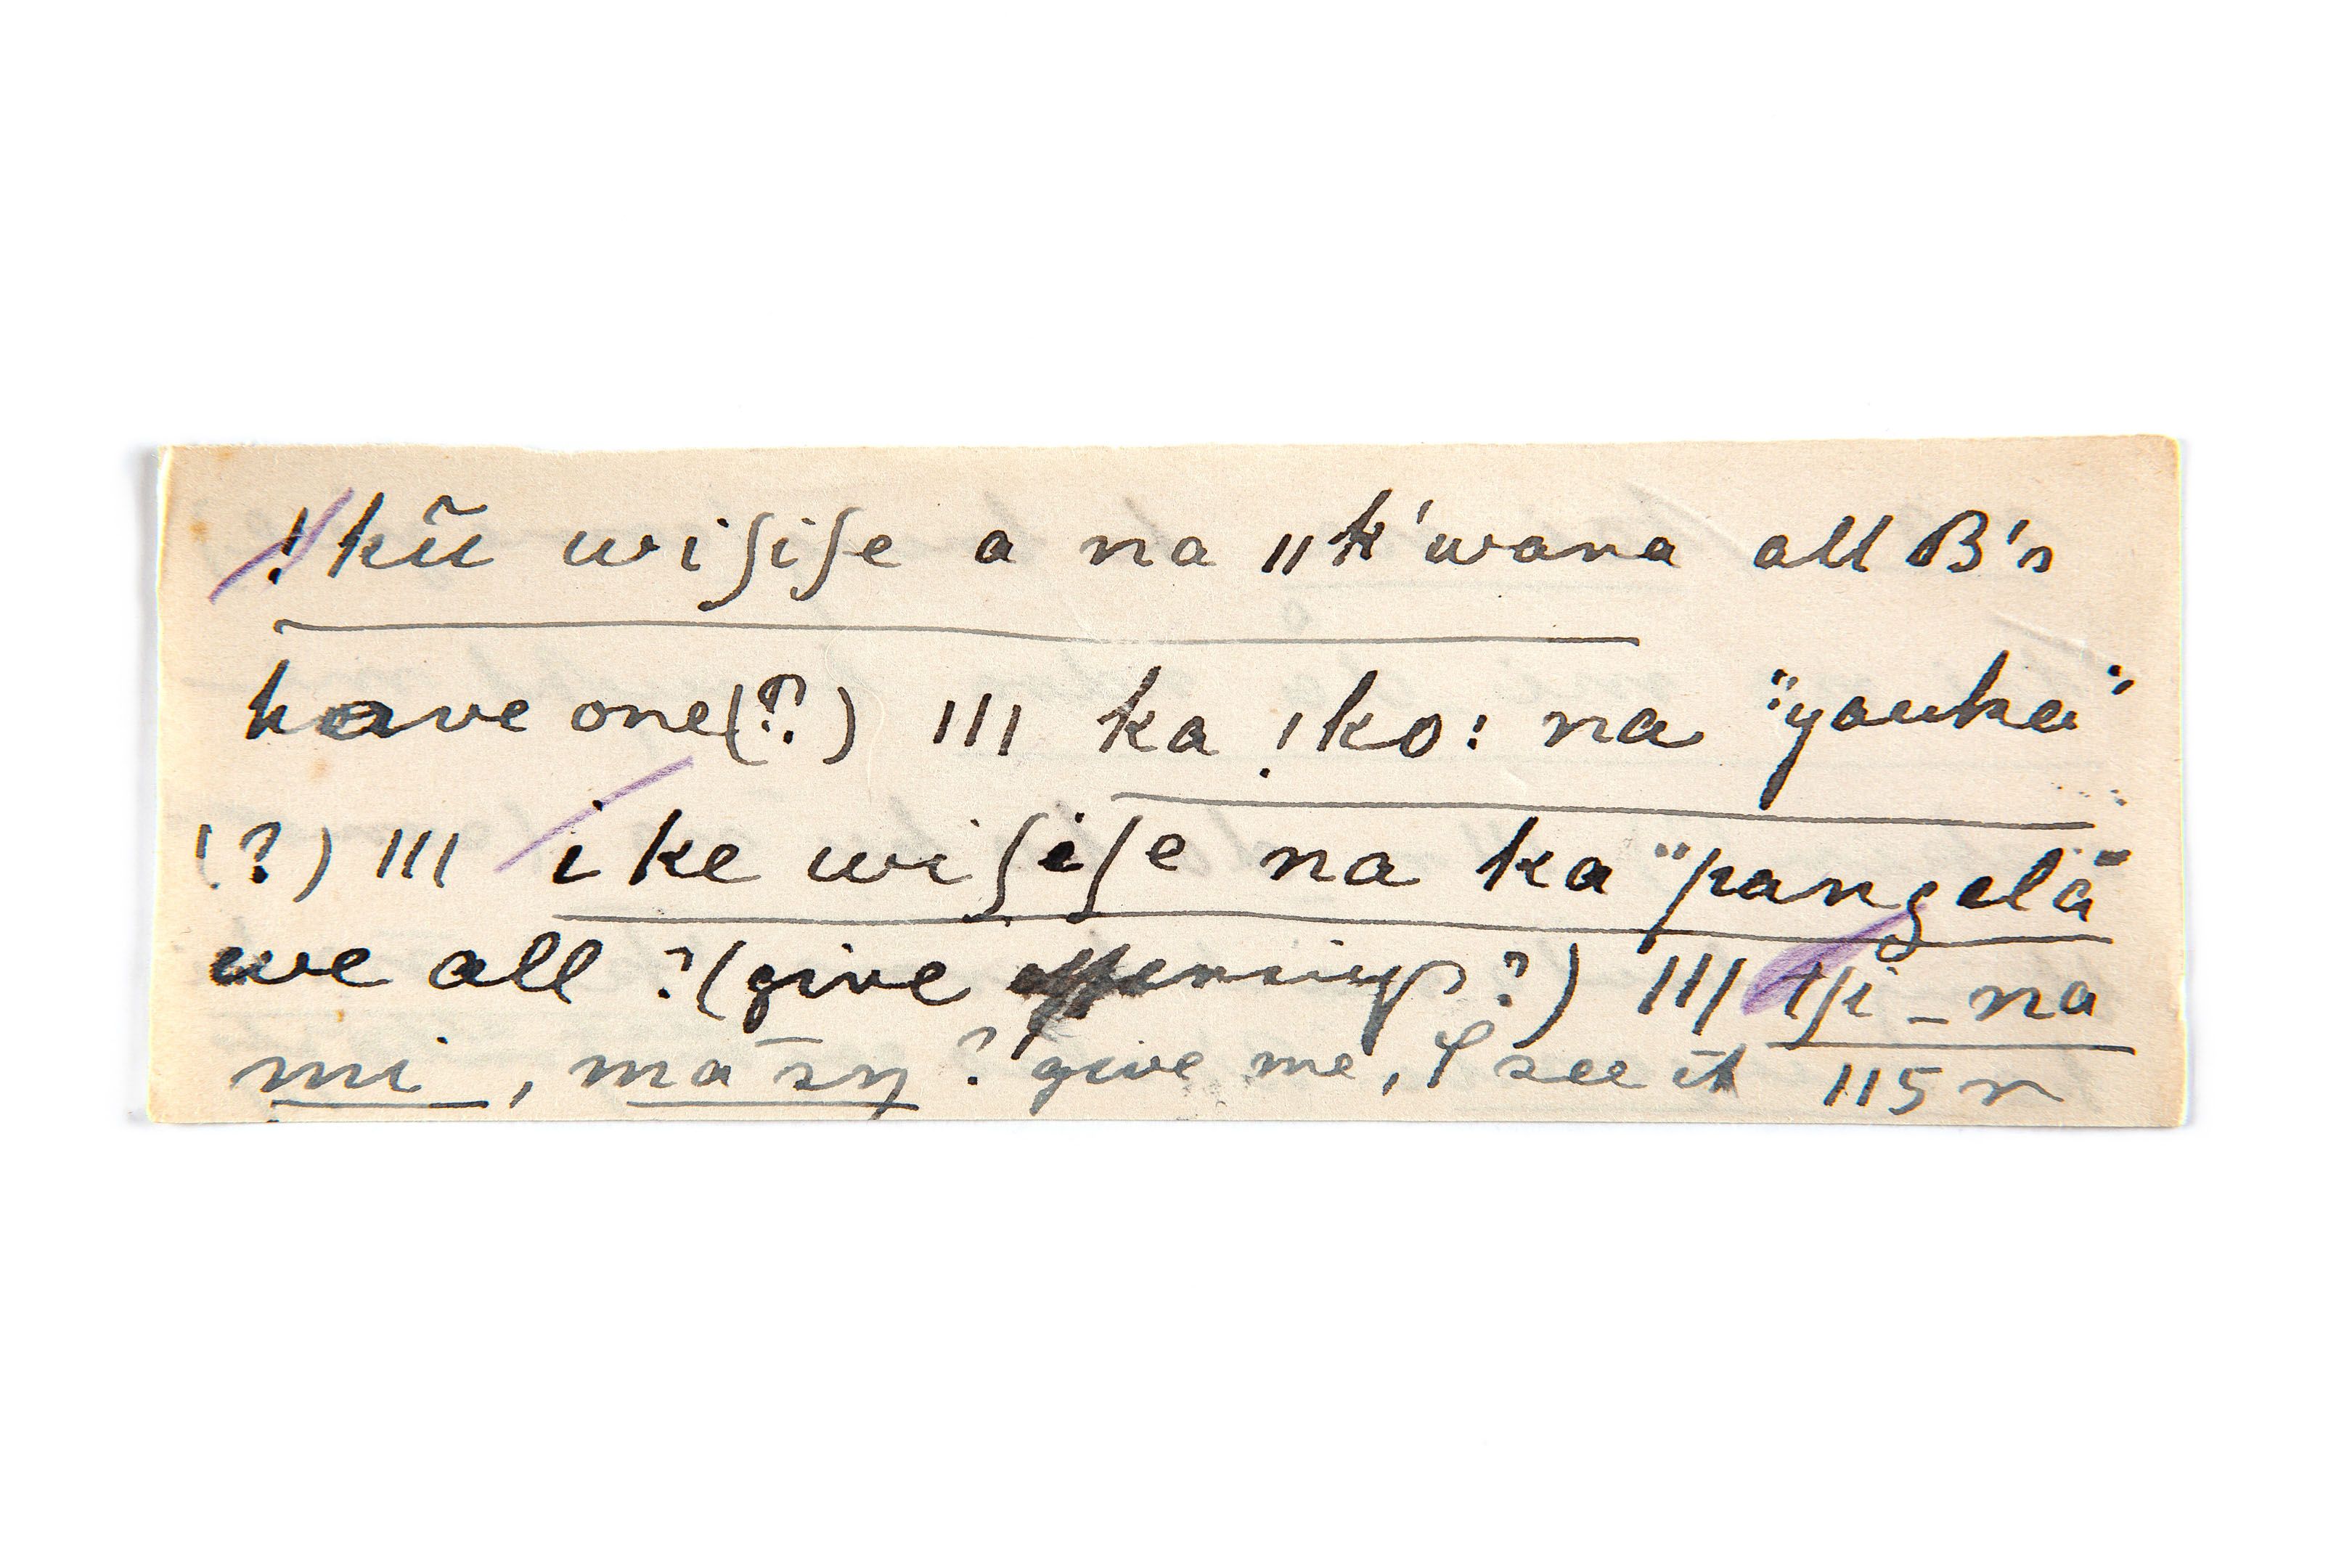 !kũ wiʃiʃe a na ǁk'wana all B's
have one(?) III ka !ko: na "yauka"
(?) III i ke wiʃiʃe na ka "pangela"
we all ?(give ?) III tʃi _ na
mi , ma sŋ ? give me, I see it 115 r